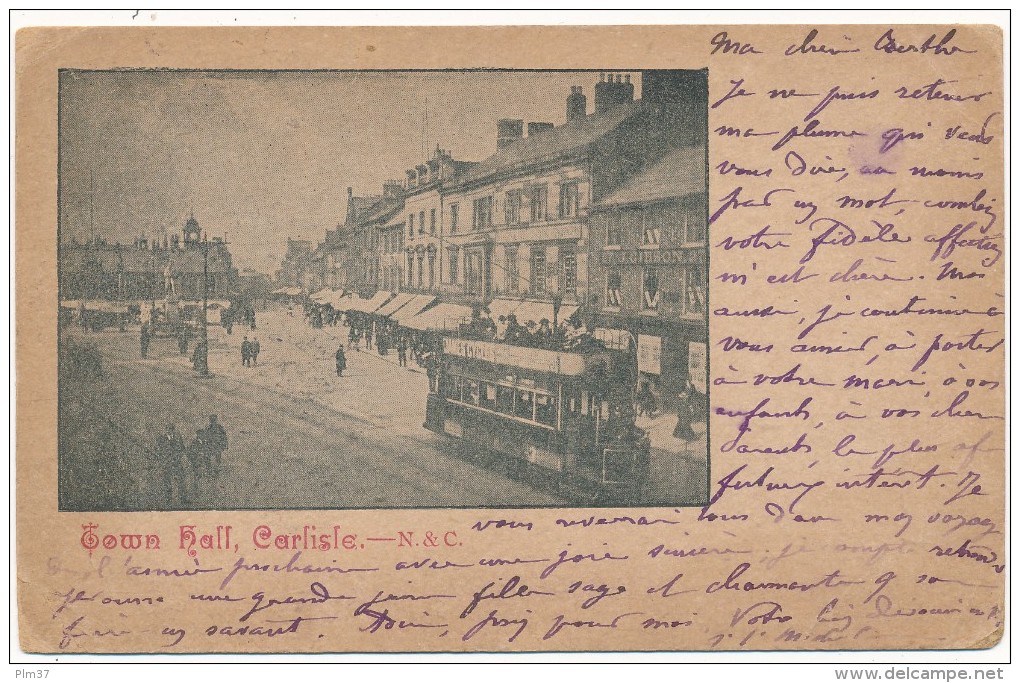 Ma chère Berthe
Je ne puis retenir
ma plume qui veut
vous dire, au moins
par un mot, combien
votre fidèle affection
m'est chère. Moi
aussi, je continue à
vous aimer, à porter
à votre mari, à vos
enfants, à vos chers
parents, le plus af
intérêt. Je
vous reverrai tous dans mon voyage
l'année prochaine avec une joie sincère, je compte retrouver
une grande jeune fille sage et charmante
un savant. Adieu, priez pour moi. Votre bien
J. GIBSON
Town Hall, Carlisle.—N. & C.
Plm37
www.delcampe.net